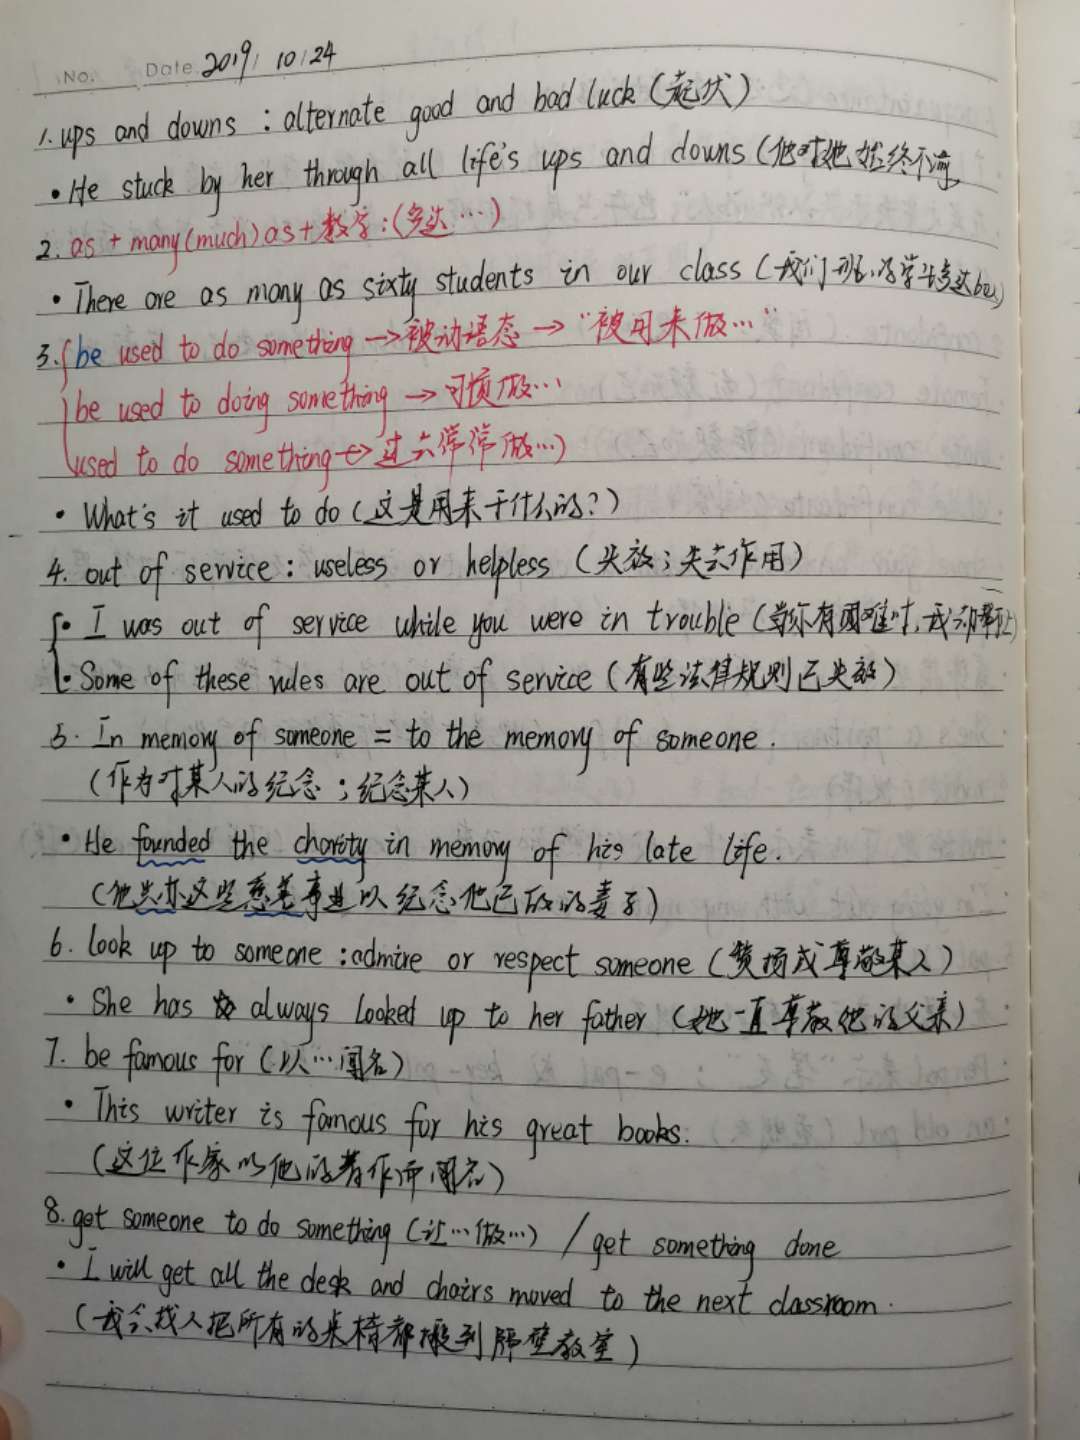 No. Date 2019/ 10/24
1. ups and downs : alternate good and bad luck (起伏)
• He stuck by her through all life's ups and downs (他对她始终不渝
2. as + many(much) as + 数字:(多达…)
• There are as many as sixty students in our class (我们班的学生多达60人)
3. be used to do something → 被动语态 → "被用来做…"
be used to doing something → 习惯做…
used to do something → 过去常常做…)
• What's it used to do (这是用来干什么的?)
4. out of service : useless or helpless (失效;失去作用)
• I was out of service while you were in trouble (当你有困难时,我
• Some of these rules are out of service (有些法律规则已失效)
5. In memory of someone = to the memory of someone.
(作为对某人的纪念;纪念某人)
• He founded the charity in memory of his late life.
(他兴办这些慈善事业以纪念他已故的妻子)
6. look up to someone : admire or respect someone (赞扬或尊敬某人)
• She has always looked up to her father (她一直尊敬他的父亲)
7. be famous for (以…闻名)
• This writer is famous for his great books.
(这位作家以他的著作而闻名)
8. get someone to do something (让…做…) / get something done
• I will get all the desk and chairs moved to the next classroom.
(我会找人把所有的桌椅都搬到隔壁教室)